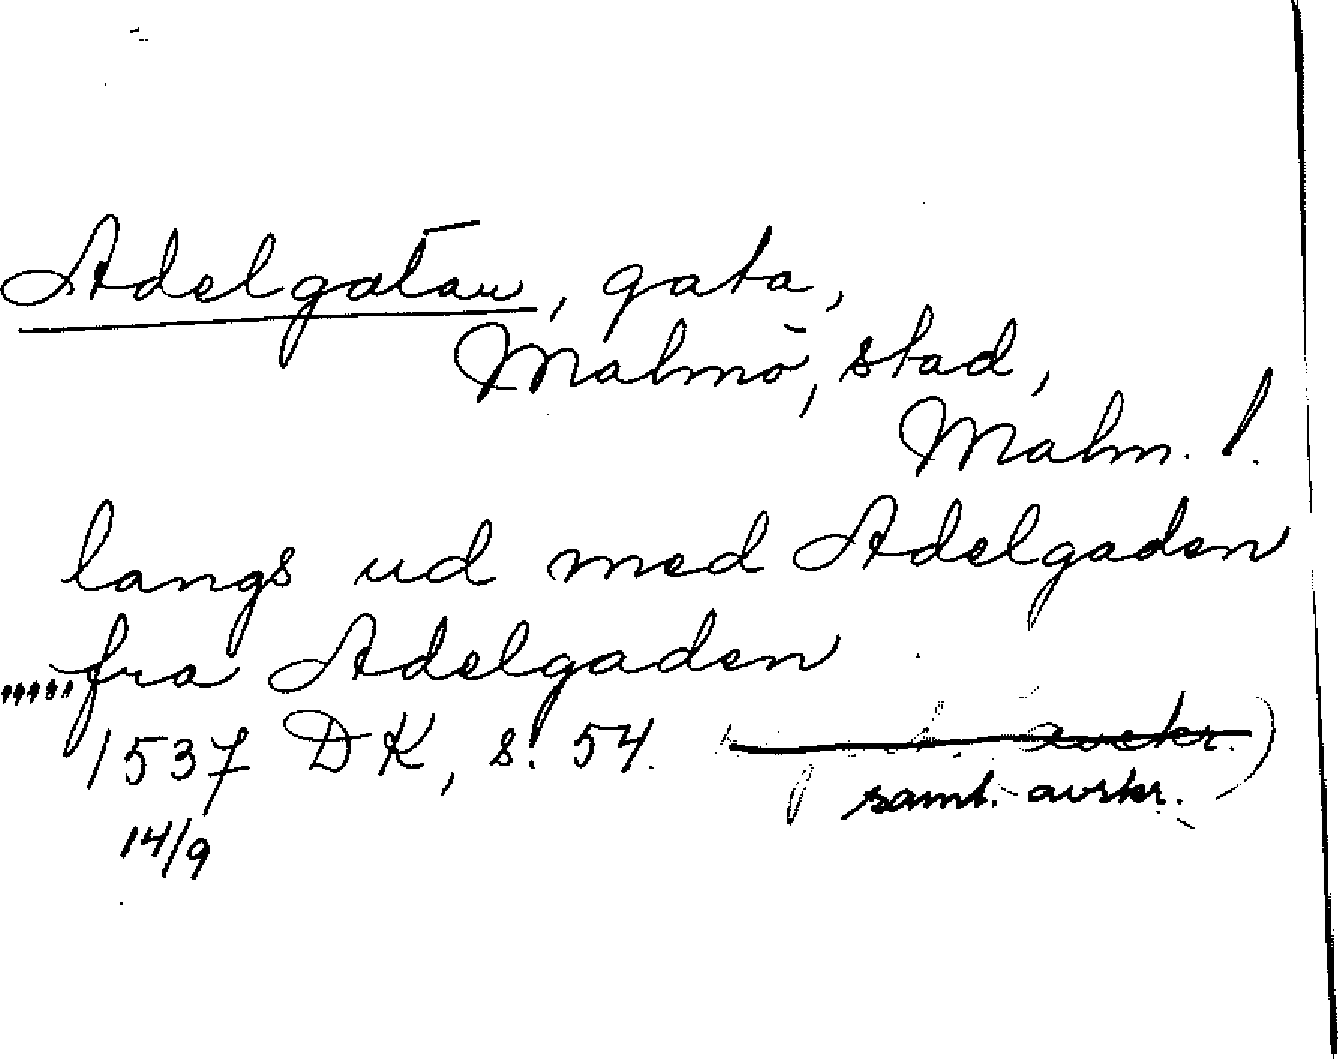 Adelgatan, gata,
Malmö, stad,
Malm. l.
langs ud med Adelgaden
..... fra Adelgaden
1537 DK, s. 54.
avskr.)
saml. avskr.
14/9